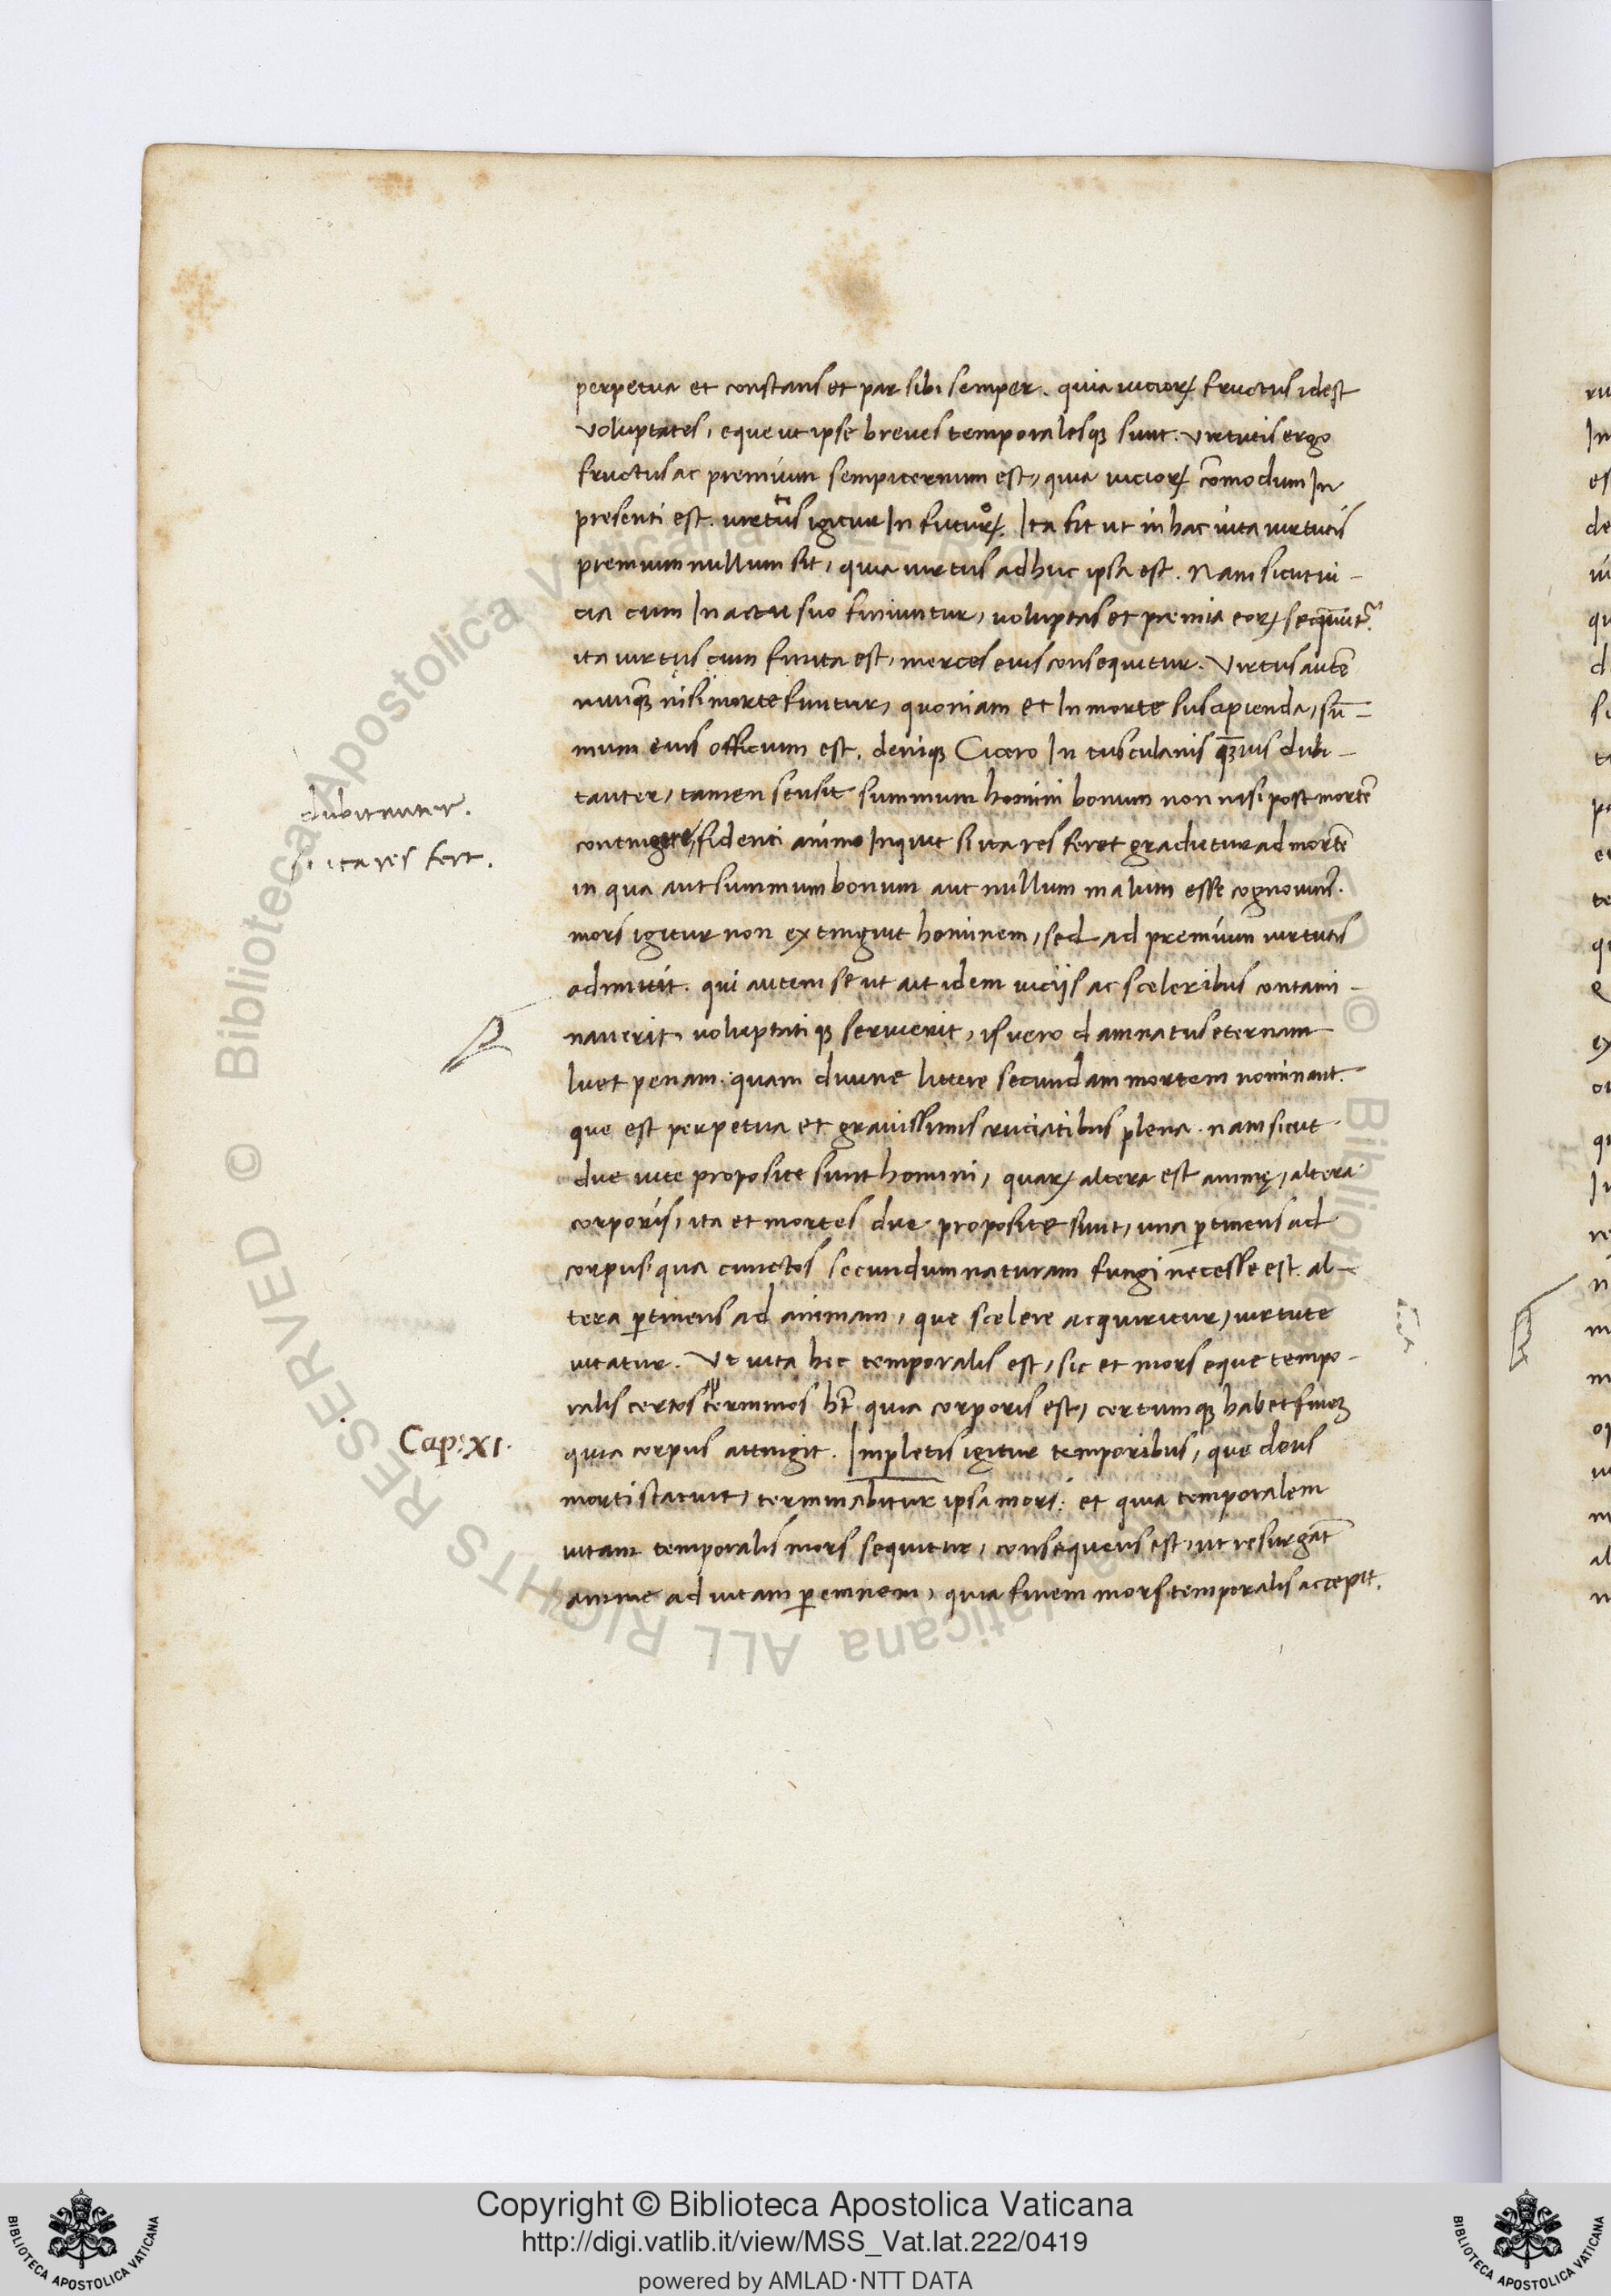 perpetua et constans et par sibi semper. quia uicioꝝ fructus idest
voluptates, eque ut ipse breues temporalesqꝫ sunt. virtutis ergo
fructus ac premium sempiternum est, quia uicioꝝ cōmodum In
presenti est. uirtus igitur In futuroꝝ. Ita fit ut in hac uita uirtutis
premium nullum sit, quia uirtus adhuc ipsa est. Nam sicut ui-
cia cum In actu suo finiuntur, uoluptas et premia eoꝝ sequunt᷑.
ita uirtus cum finita est, merces eius consequitur. Virtus autē
nunꝗ̄ nisi morte finitur, quoniam et In morte suscipienda, sū-
mum eius officium est. deniqꝫ Cicero In tusculanis ꝗ̄uis dubi-
tanter, tamen sensit summum homini bonum non nisi post mortē
contingere, fidenti animo Inquit si ita res feret gradiatur ad mortē
in qua aut summum bonum aut nullum malum esse cognouim᷒.
mors igitur non extinguit hominem, sed ad premium uirtutis
admittit. qui autem se ut ait idem uiciis ac sceleribus contami-
nauerit, voluptatiqꝫ seruierit, is uero damnatus eternam
luet penam. quam diuine littere secundam mortem nominant.
que est perpetua et grauissimis cruciatibus plena. nam sicut
due uite proposite sunt homini, quaꝝ altera est animę, altera
corporis, ita et mortes due proposite sunt, una ꝑtinens ad
corpus, qua cunctos secundum naturam fungi necesse est. al-
tera ꝑtinens ad animam, que scelere acquiritur, uirtute
uitatur. Vt uita hec temporalis est, sic et mors eque tempo-
ralis certos terminos hꝫ̄ quia corporis est, certumqꝫ habet finē
quia corpus attingit. Impletis igitur temporibus, que deus
morti statuit, terminabitur ipsa mors. et quia temporalem
uitam temporalis mors sequitur, consequens est, ut resurgāt
anime ad uitam ꝑennem, quia finem mors temporalis accepit.
dubitanter.
si ita res fert.
Cap: XI.
Copyright © Biblioteca Apostolica Vaticana
http://digi.vatlib.it/view/MSS_Vat.lat.222/0419
powered by AMLAD·NTT DATA
BIBLIOTECA APOSTOLICA VATICANA
BIBLIOTECA APOSTOLICA VATICANA
© Biblioteca Apostolica Vaticana ALL RIGHTS RESERVED